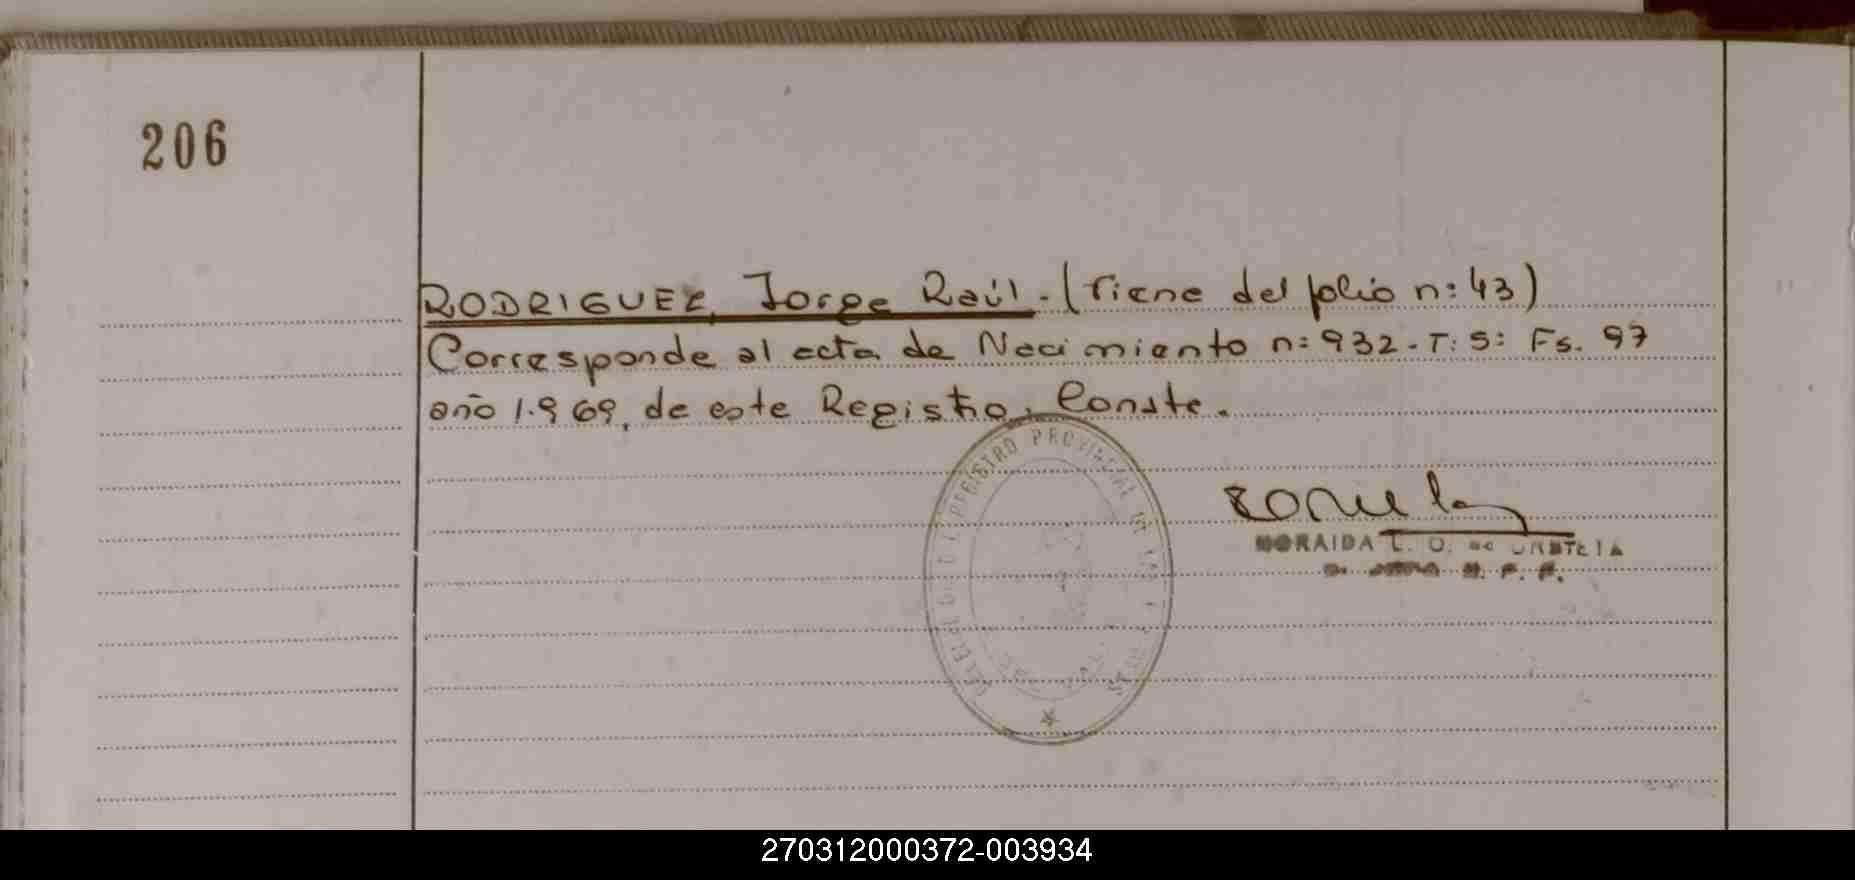 206
RODRIGUEZ, Jorge Raúl. (Viene del folio n: 43)
Corresponde al acta de Nacimiento n: 932. T: S: Fs. 97
año 1.969, de este Registro. Conste.
REGISTRO PROVINCIAL DE LAS
NORAIDA
270312000372-003934